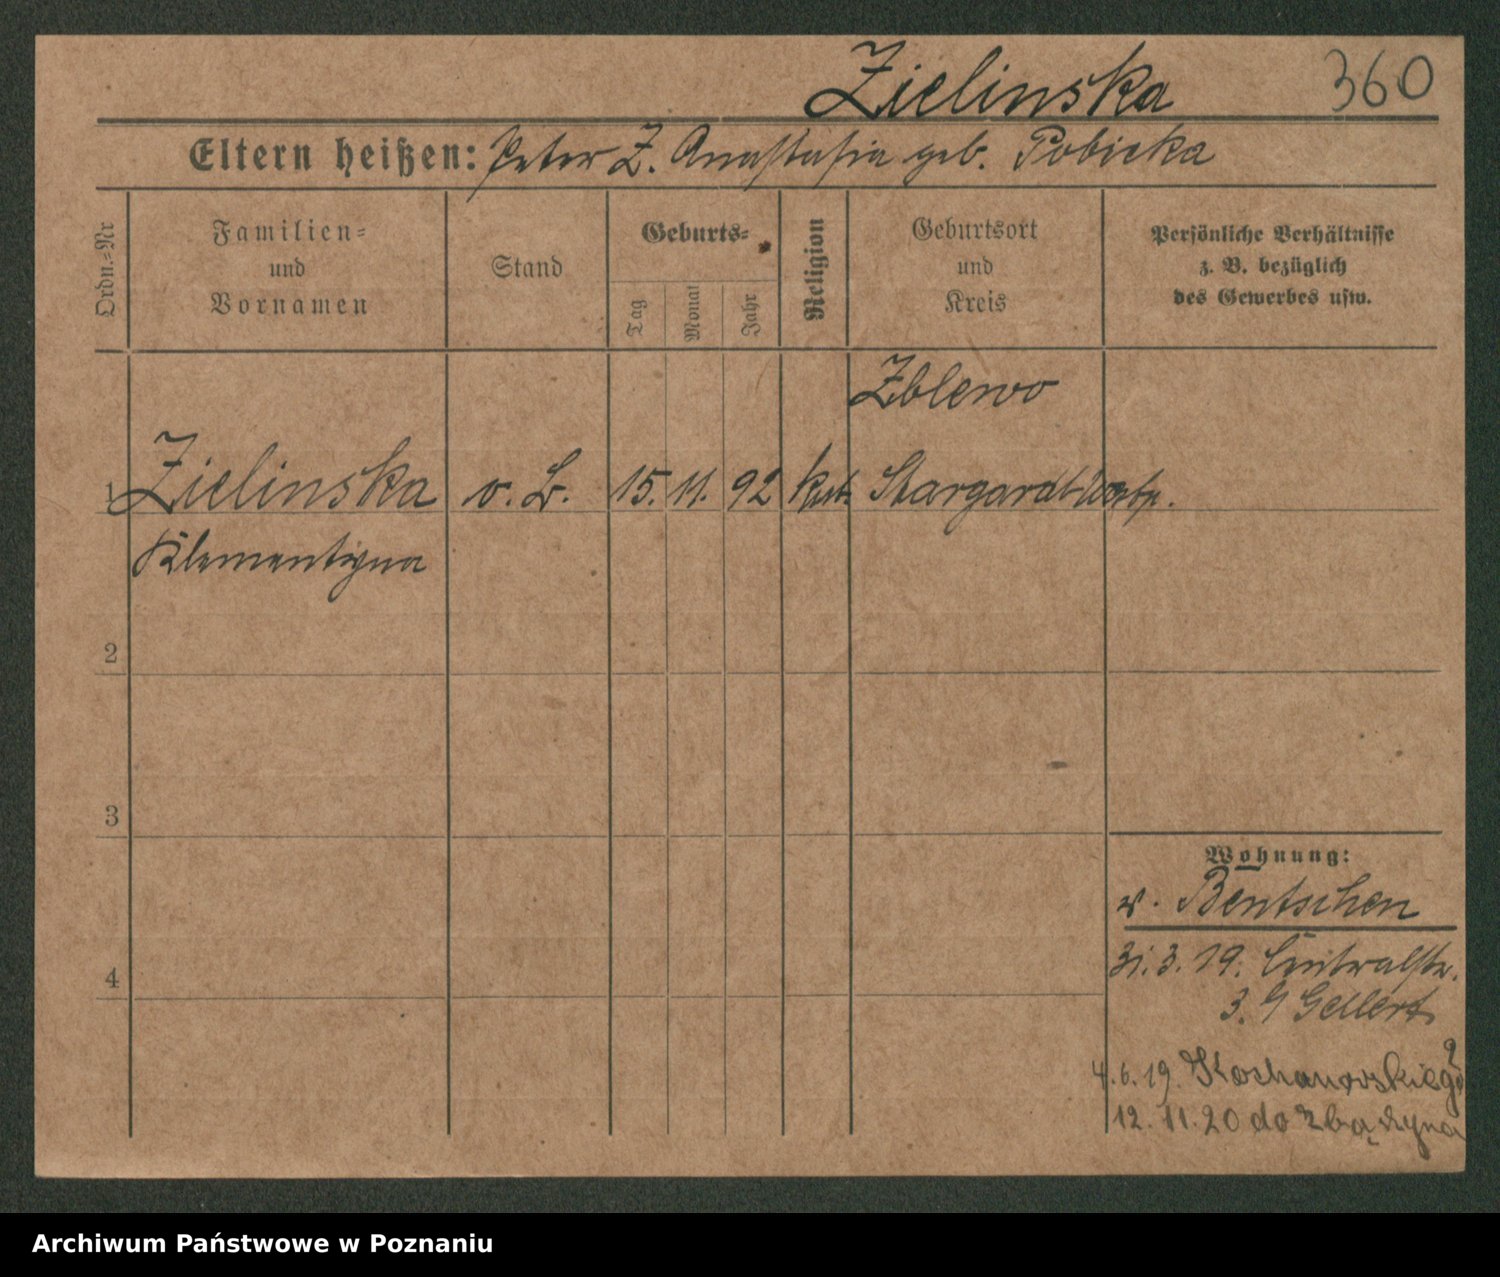 Zielinska 360
Eltern heißen: Peter Z. Anastasia geb. Pobicka
Ordn.-Nr
Familien- und Vornamen
Stand
Geburts-
Tag
Monat
Jahr
Religion
Geburtsort und Kreis
Persönliche Verhältnisse z. B. bezüglich des Gewerbes usw.
Zblewo
1 Zielinska o. B. 15. 11. 92 kath. Stargardt
Klementyna
2
3
4
Wohnung:
v. Bentschen
31. 3. 19. Centralstr.
3. Gellert
4. 6. 19. Kochanowskiego
12. 11. 20 do Zbąszyna
Archiwum Państwowe w Poznaniu